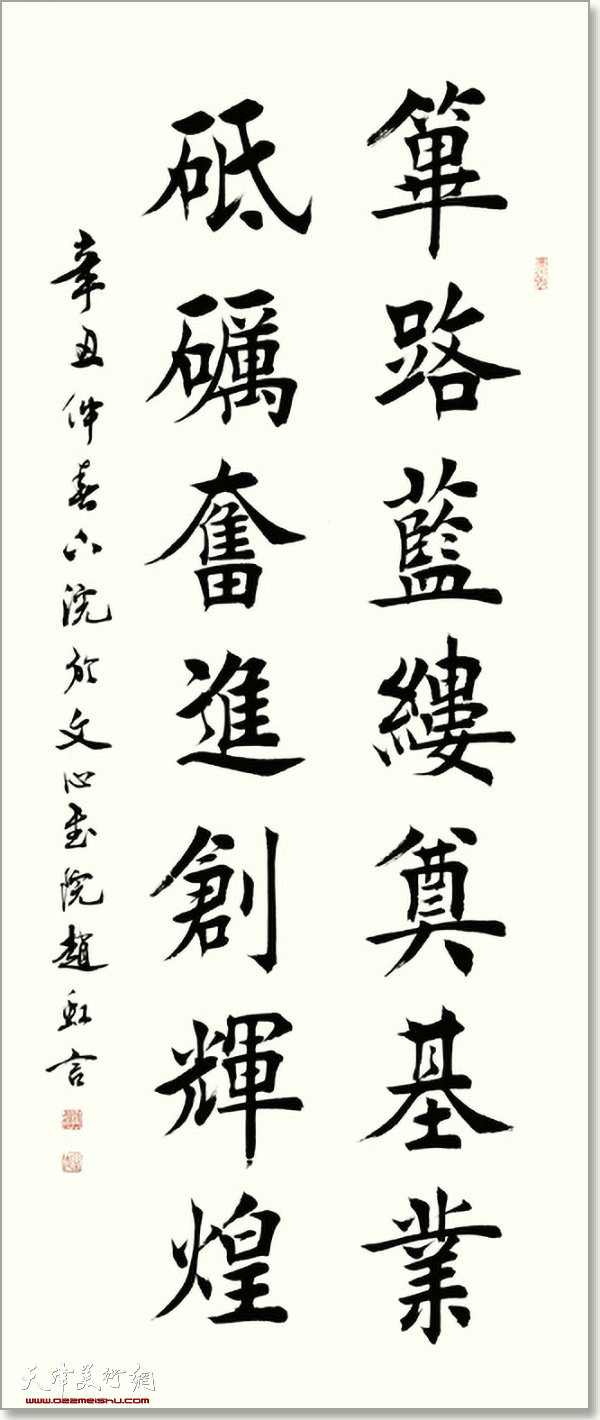 篳路藍縷奠基業
砥礪奮進創輝煌
辛丑仲春心浣於文心書院趙虹言
天津美術網
www.022meishu.com